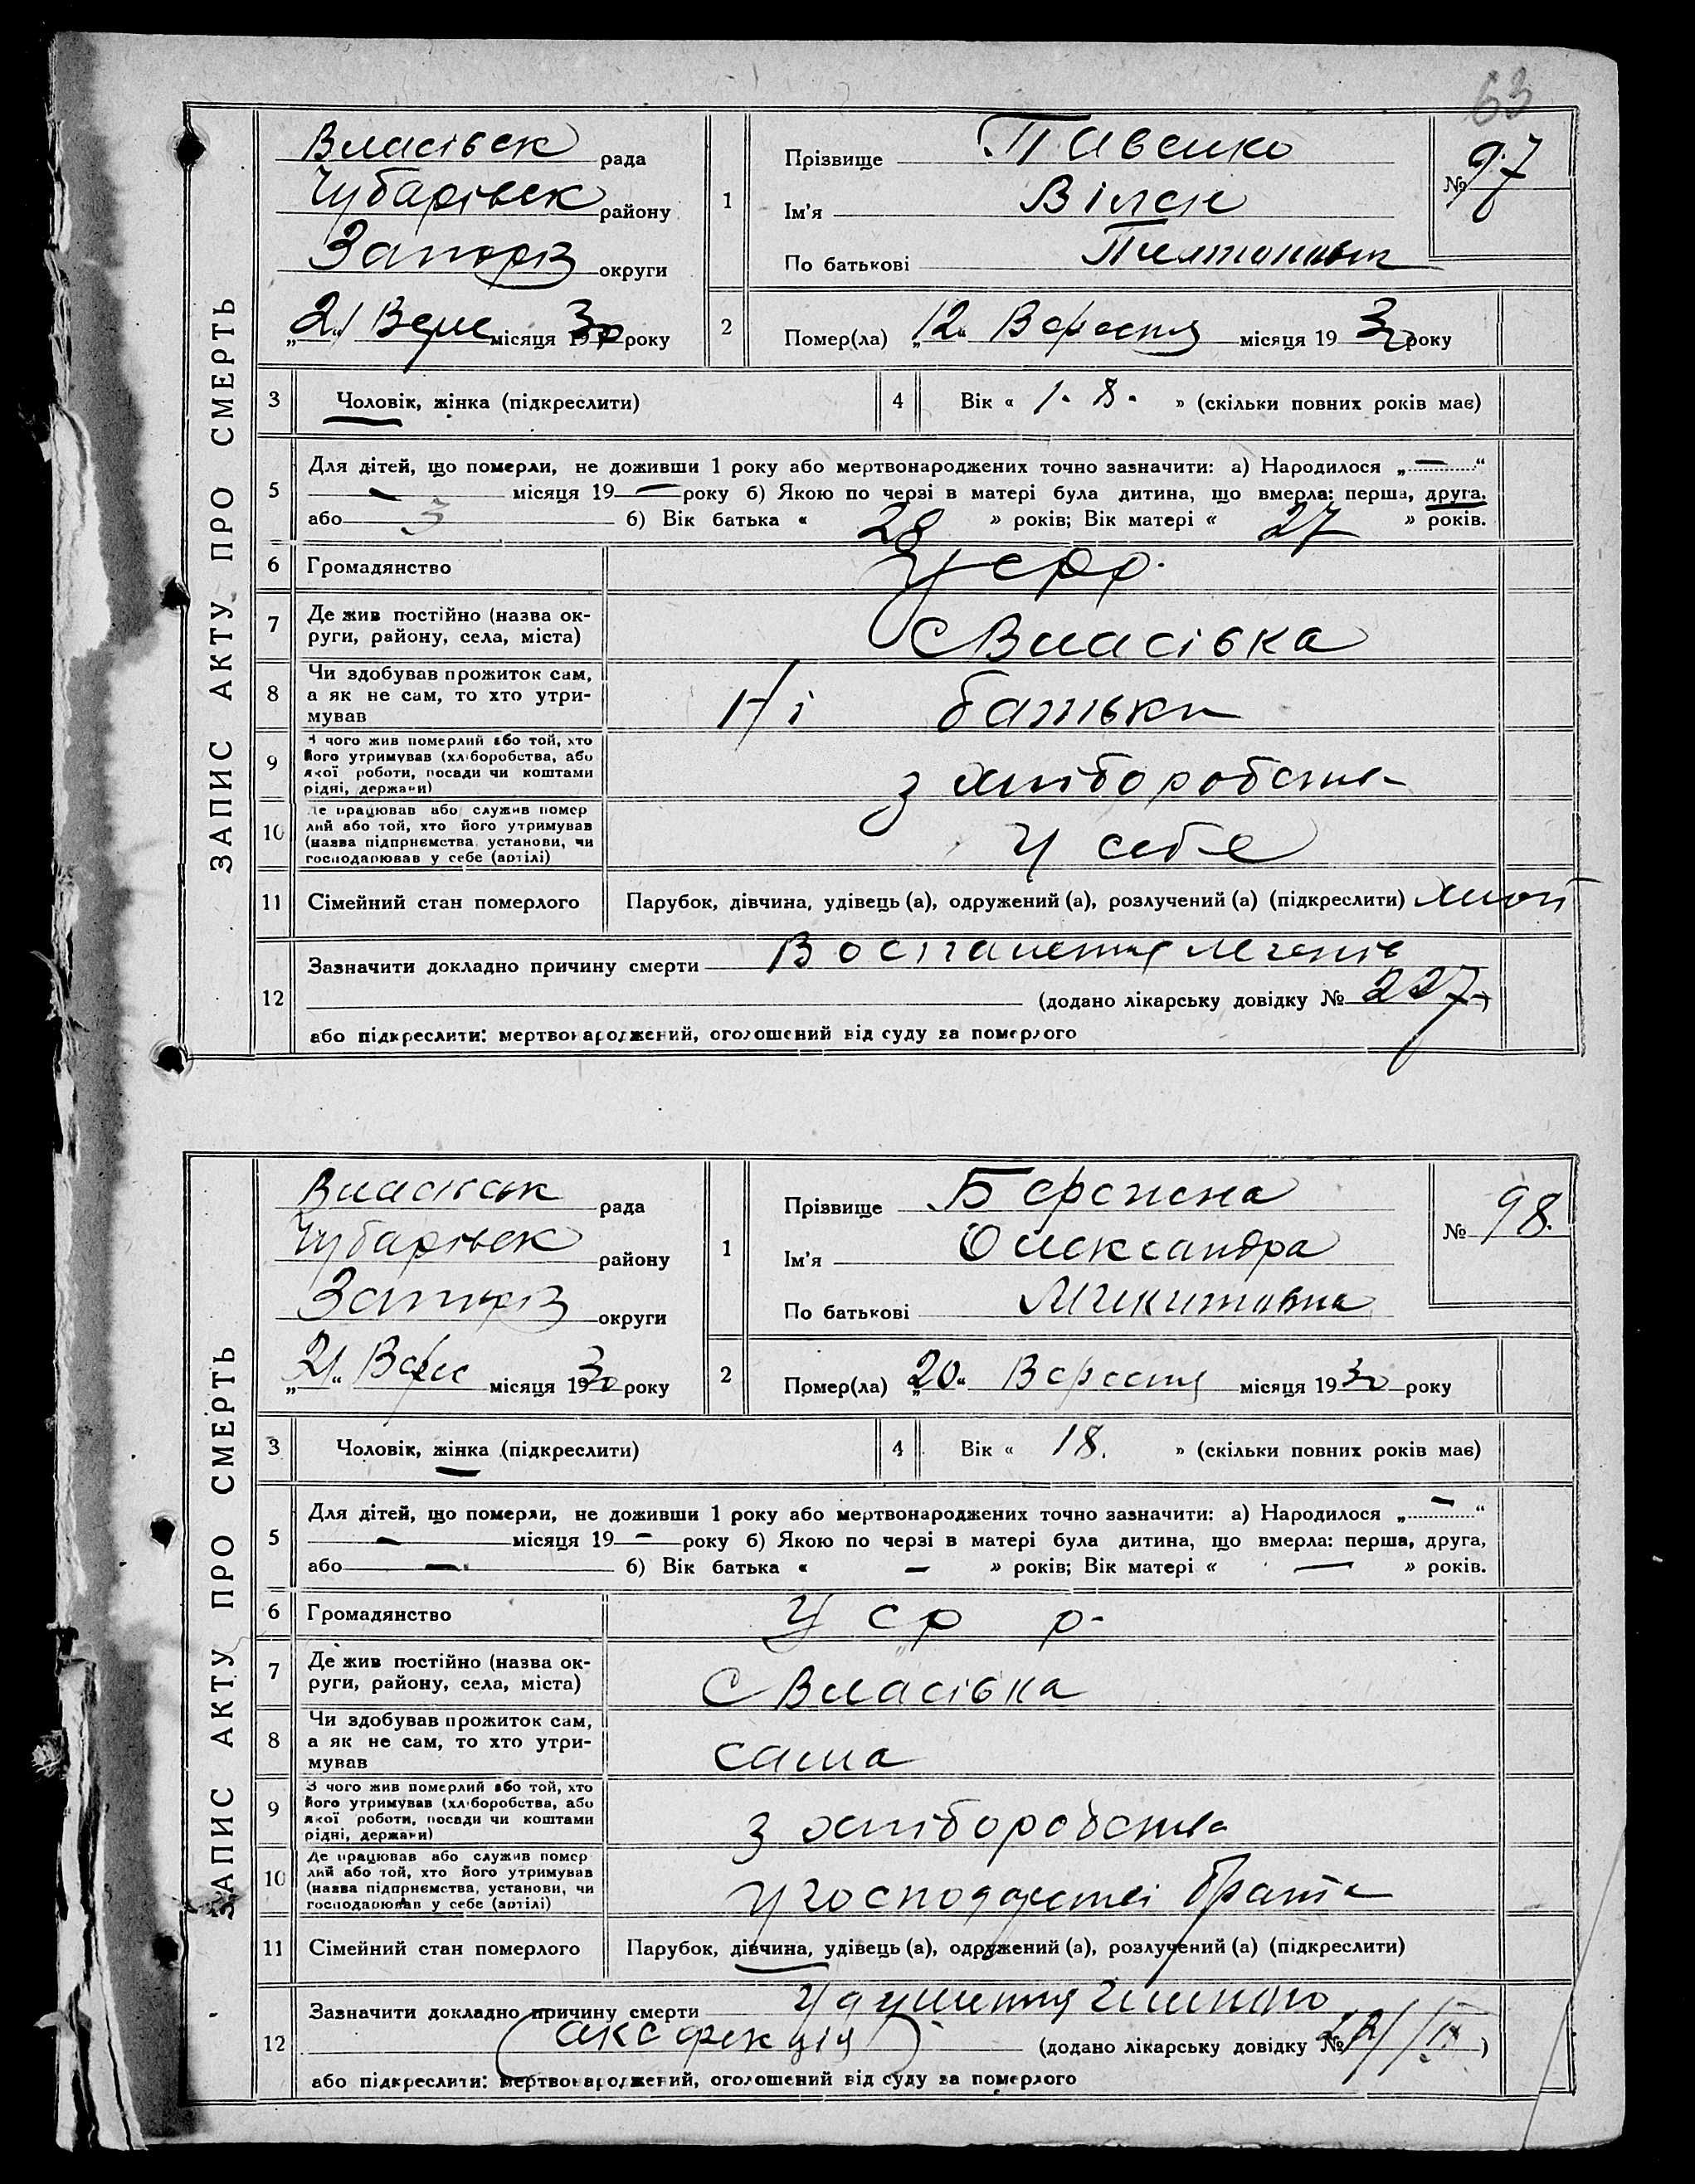 63
ЗАПИС АКТУ ПРО СМЕРТЬ
Власівск рада
Чубарівск району
Запоріз округи
„21“ Верес місяця 1930 року
1
Прізвище Павенко
Ім'я Вілен
По батькові
№ 97
2
Помер(ла) „12“ Вересня місяця 1930 року
3 Чоловік, жінка (підкреслити)
4 Вік « 1. 8. » (скільки повних років має)
5 Для дітей, що померли, не доживши 1 року або мертвонароджених точно зазначити: а) Народилося „ — “
— місяця 19 — року б) Якою по черзі в матері була дитина, що вмерла: перша, друга,
або 3 б) Вік батька « 28 » років; Вік матері « 27 » років.
6 Громадянство Усрр.
7 Де жив постійно (назва ок-
руги, району, села, міста) с Власівка
8 Чи здобував прожиток сам,
а як не сам, то хто утри-
мував Ні батьки
9 З чого жив померлий або той, хто
його утримував (хліборобства, або
якої роботи, посади чи коштами
рідні, держави) з хліборобства
10 Де працював або служив помер
лий або той, хто його утримував
(назва підприємства, установи, чи
господарював у себе (артілі) у себе
11 Сімейний стан померлого Парубок, дівчина, удівець (а), одружений (а), розлучений (а) (підкреслити)
12 Зазначити докладно причину смерти Воспалення легенів
(додано лікарську довідку № 227)
або підкреслити: мертвонароджений, оголошений від суду за померлого
ЗАПИС АКТУ ПРО СМЕРТЬ
Власівск рада
Чубарівск району
Запоріз округи
„21“ Верес місяця 1930 року
1
Прізвище Бережна
Ім'я Олександра
По батькові Микитовна
№ 98.
2
Помер(ла) „20“ Вересня місяця 1930 року
3 Чоловік, жінка (підкреслити)
4 Вік « 18. » (скільки повних років має)
5 Для дітей, що померли, не доживши 1 року або мертвонароджених точно зазначити: а) Народилося „ — “
— місяця 19 — року б) Якою по черзі в матері була дитина, що вмерла: перша, друга,
або — б) Вік батька « — » років; Вік матері « — » років.
6 Громадянство У с р р.
7 Де жив постійно (назва ок-
руги, району, села, міста) с Власівка
8 Чи здобував прожиток сам,
а як не сам, то хто утри-
мував сама
9 З чого жив померлий або той, хто
його утримував (хліборобства, або
якої роботи, посади чи коштами
рідні, держави) з хліборобства
10 Де працював або служив помер
лий або той, хто його утримував
(назва підприємства, установи, чи
господарював у себе (артілі) у господарстві брата
11 Сімейний стан померлого Парубок, дівчина, удівець (а), одружений (а), розлучений (а) (підкреслити)
12 Зазначити докладно причину смерти Удушення глиною
(додано лікарську довідку № )
або підкреслити: мертвонароджений, оголошений від суду за померлого